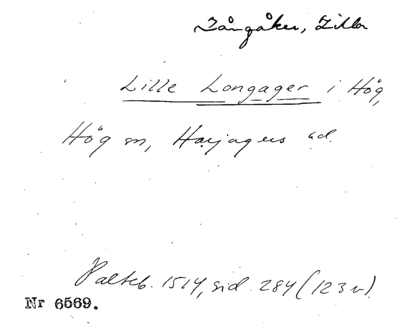 Långåker, Lilla
Lille Longager i Hög,
Hög sn, Harjagers hd.
Palteb. 1514, sid. 284 (123 v).
Nr 6569.